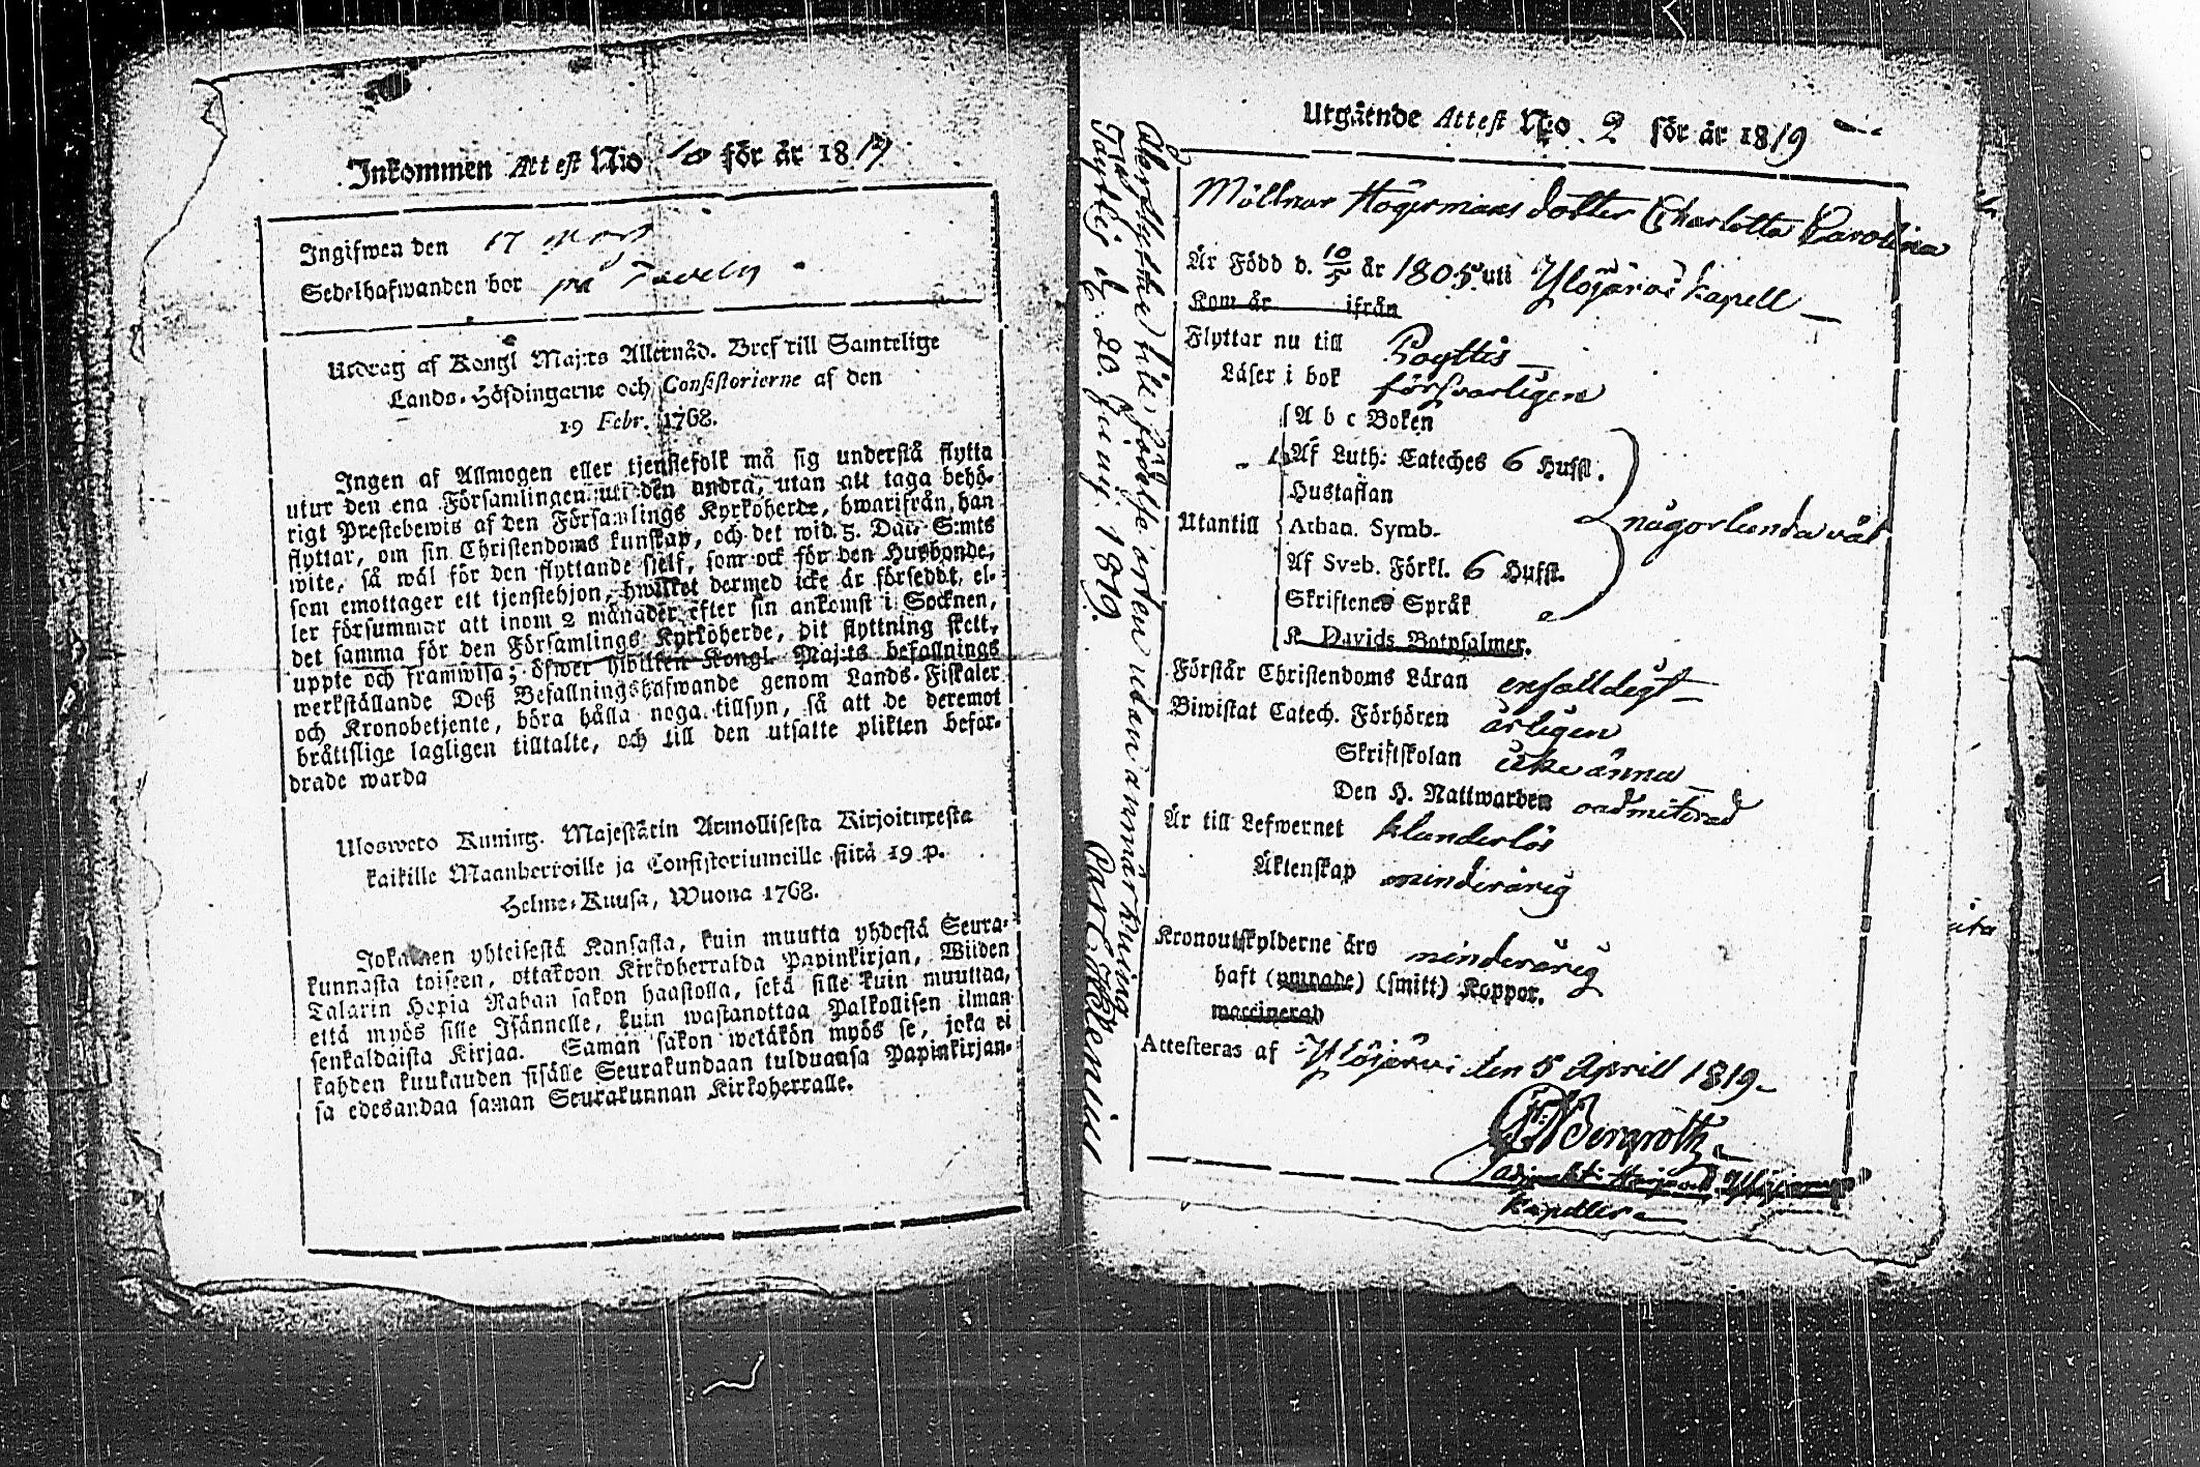 Inkommen Attest N:o 10 för år 1819
Ingifwen den 17
Sedelhafwanden bor på
Utdrag af Kongl Maj:ts Allernåd. Bref till Samtelige
Lands-Höfdingarne och Consistorierne af den
19 Febr. 1768.
Ingen af Allmogen eller tjenstefolk må sig understå flytta
utur den ena Församlingen uti den andra, utan att taga behö-
rigt Prestebewis af den Församlings Kyrkoherde, hwarifrån han
flyttar, om sin Christendoms kunskap, och det wid 5. Dal. S:mts
wite, så wäl för den flyttande sjelf, som ock för den Husbonde,
som emottager ett tjenstehjon, hwilket dermed icke är försedt, el-
ler försummar att inom 2 månader efter sin ankomst i Socknen,
det samma för den Församlings Kyrkoherde, dit flyttning skett,
uppte och framwisa; öfwer hwilken Kongl. Maj:ts befallnings
werkställande Deß Befallningshafwande genom Lands-Fiskaler
och Kronobetjente, böra hålla noga tillsyn, så att de deremot
bråttslige lagligen tilltalte, och till den utsatte plikten befor-
drade warda
Ulosweto Kuning. Majestätin Armollisesta Kirjoituxesta
kaikille Maanherroille ja Consistoriumeille siitä 19 p.
Helme-Kuusa, Wuona 1768.
Jokainen yhteisestä Kansasta, kuin muutta yhdestä Seura-
kunnasta toiseen, ottakoon Kirkoherralda Papinkirjan, Wiiden
Talarin Hopia Rahan sakon haastolla, sekä sille kuin muuttaa,
että myös sille Isännelle, kuin wastanottaa Palkollisen ilman
senkaldaista Kirjaa. Saman sakon wetäkön myös se, joka ei
kahden kuukauden sisälle Seurakundaan tulduansa Papinkirjan-
sa edesandaa saman Seurakunnan Kirkoherralle.
utan anmärkning
d. 20 Junij 1819.
Utgående Attest N:o 2 för år 1819
Möllnar Högermans dotter Charlotta Carolina
Är Född d. 10/5 år 1805 uti Ylöjärvi Kapell
Kom år ifrån
Flyttar nu till Poyttis
Läser i bok försvarligen
A b c Boken
Af Luth: Cateches 6 Hufst.
Hustaflan
Utantill Athan. Symb. någorlunda väl
Af Sveb. Förkl. 6 Hufst.
Skriftenes Språk
K. Davids Botpsalmer.
Förstår Christendoms Läran enfalldigt
Biwistat Catech. Förhören årligen
Skriftskolan icke ännu
Den H. Nattwarden oadmiterad
Är till Lefwernet klanderlös
Äktenskap minderårig
Kronoutskylderne äro minderårig
haft (ympade) (smitt) Koppor.
vaccinerad
Attesteras af Ylöjärvi den 5 Aprill 1819
Bergroth